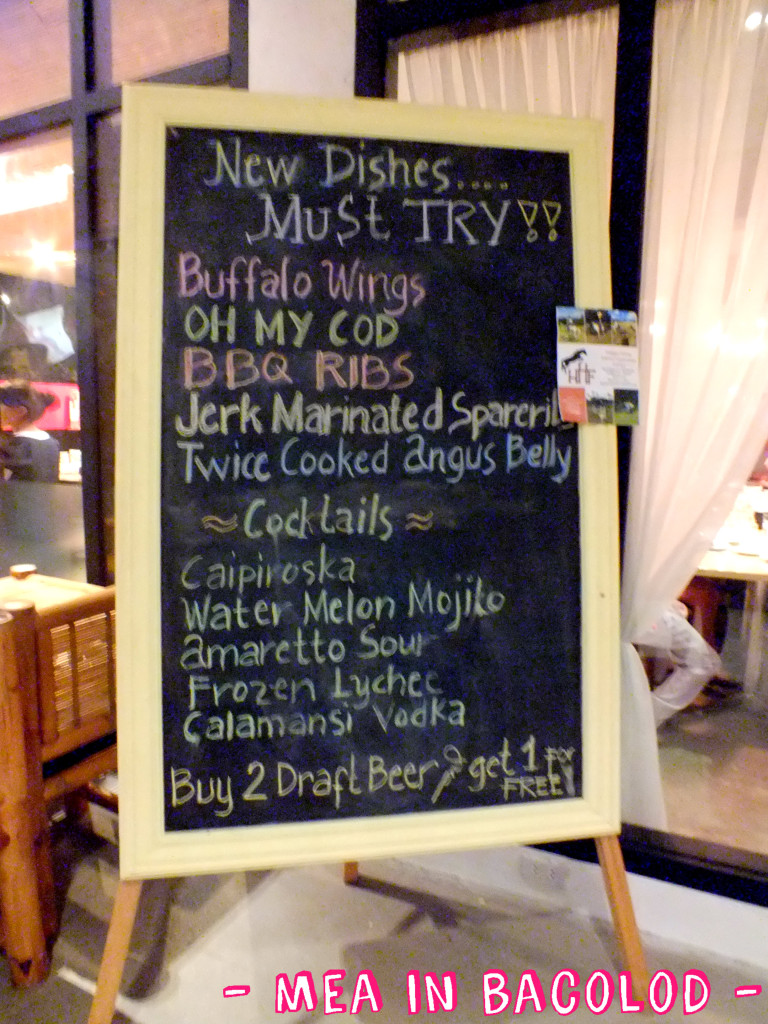 New Dishes....
MUST TRY!!
Buffalo Wings
OH MY COD
BBQ RIBS
Jerk Marinated Sparerib
Twice Cooked angus Belly
≈ Cocktails ≈
Caipiroska
Water Melon Mojito
amaretto Sour
Frozen Lychee
Calamansi Vodka
Buy 2 Draft Beer & get 1 for
FREE
HHF
- MEA IN BACOLOD -